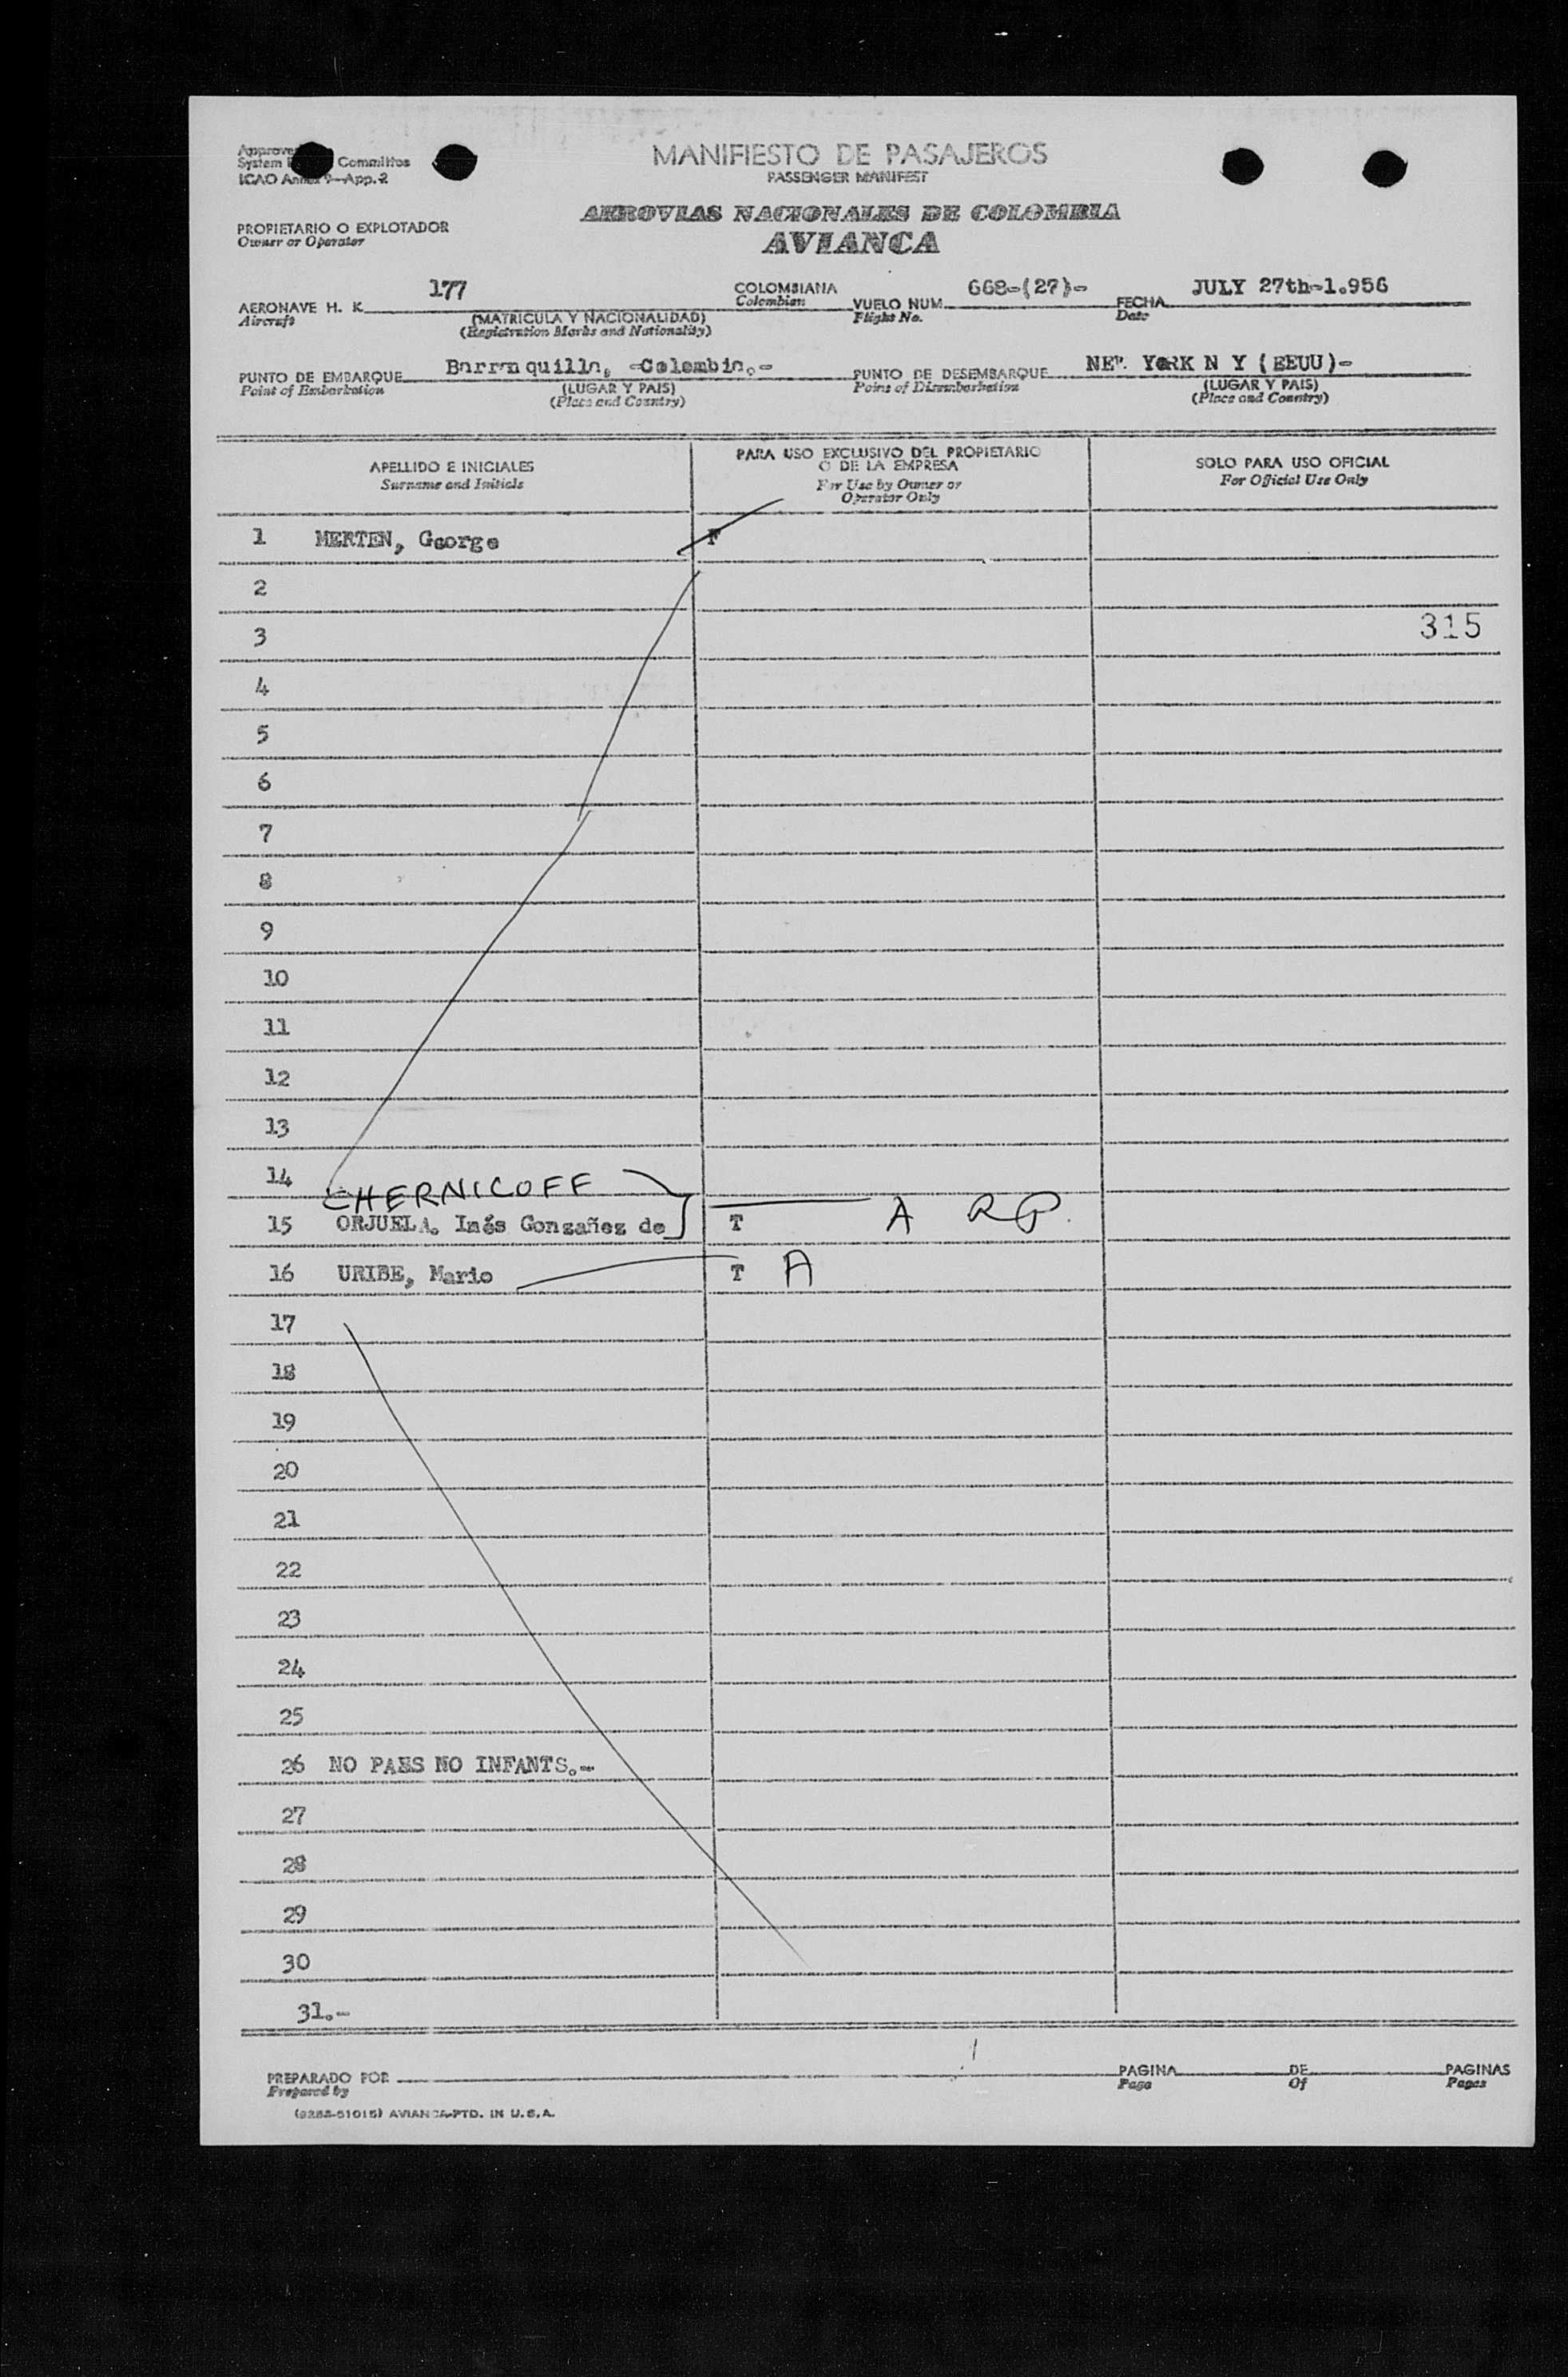 MANIFIESTO DE PASAJEROS
PASSENGER MANIFEST
System Committee
ICAO Annex 9—App. 2
PROPIETARIO O EXPLOTADOR
Owner or Operator
AEROVIAS NACIONALES DE COLOMBIA
AVIANCA
AERONAVE H. K. 177 COLOMBIANA VUELO NUM. 668-(27)- FECHA JULY 27th-1.956
Aircraft (MATRICULA Y NACIONALIDAD) Colombian Flight No. Date
(Registration Marks and Nationality)
PUNTO DE EMBARQUE Barranquilla, -Colombia.- PUNTO DE DESEMBARQUE NEW YORK N Y (EEUU)-
Point of Embarkation (LUGAR Y PAIS) Point of Disembarkation (LUGAR Y PAIS)
(Place and Country) (Place and Country)
APELLIDO E INICIALES PARA USO EXCLUSIVO DEL PROPIETARIO O DE LA EMPRESA SOLO PARA USO OFICIAL
Surname and Initials For Use by Owner or Operator Only For Official Use Only
1 MERTEN, George F
2
3 315
4
5
6
7
8
9
10
11
12
13
14
CHERNICOFF
15 ORJUELA. Inés Gonzañez de T A RP.
16 URIBE, Mario T A
17
18
19
20
21
22
23
24
25
26 NO PAES NO INFANTS.-
27
28
29
30
31.-
PREPARADO POR PAGINA DE PAGINAS
Prepared by Page Of Pages
AVIANCA-PTD. IN U.S.A.